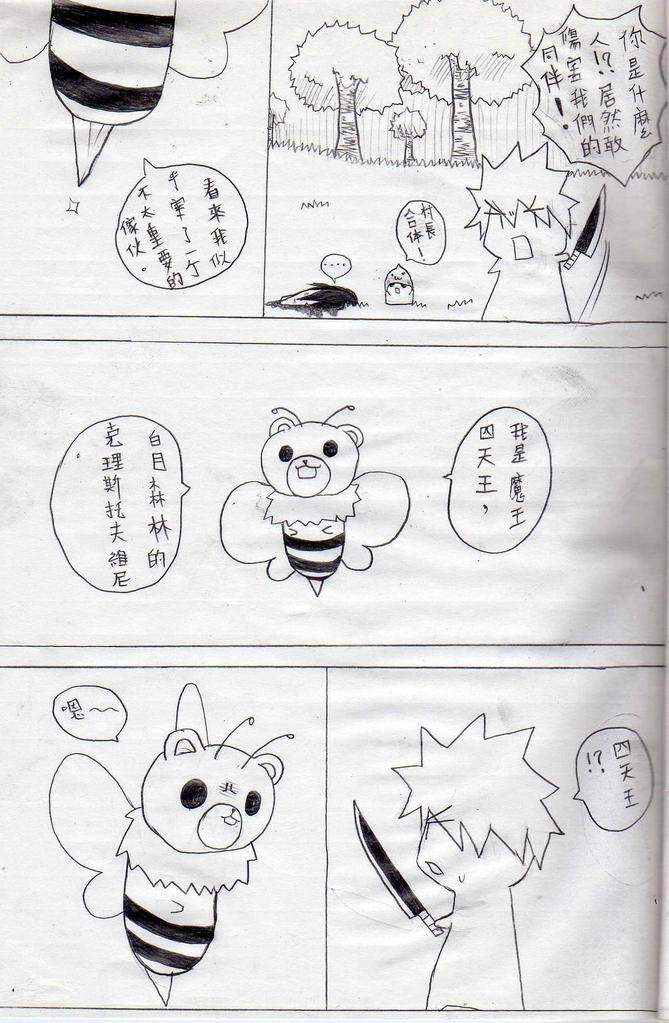 你是什麼
人!?居然敢
傷害我們的
同伴!
村長
合体!
....
看來我似
乎宰了一个
不太重要的
傢伙。
我是魔王
四天王，
白目森林的
克理斯托夫維尼
四天王
!?
嗯~~